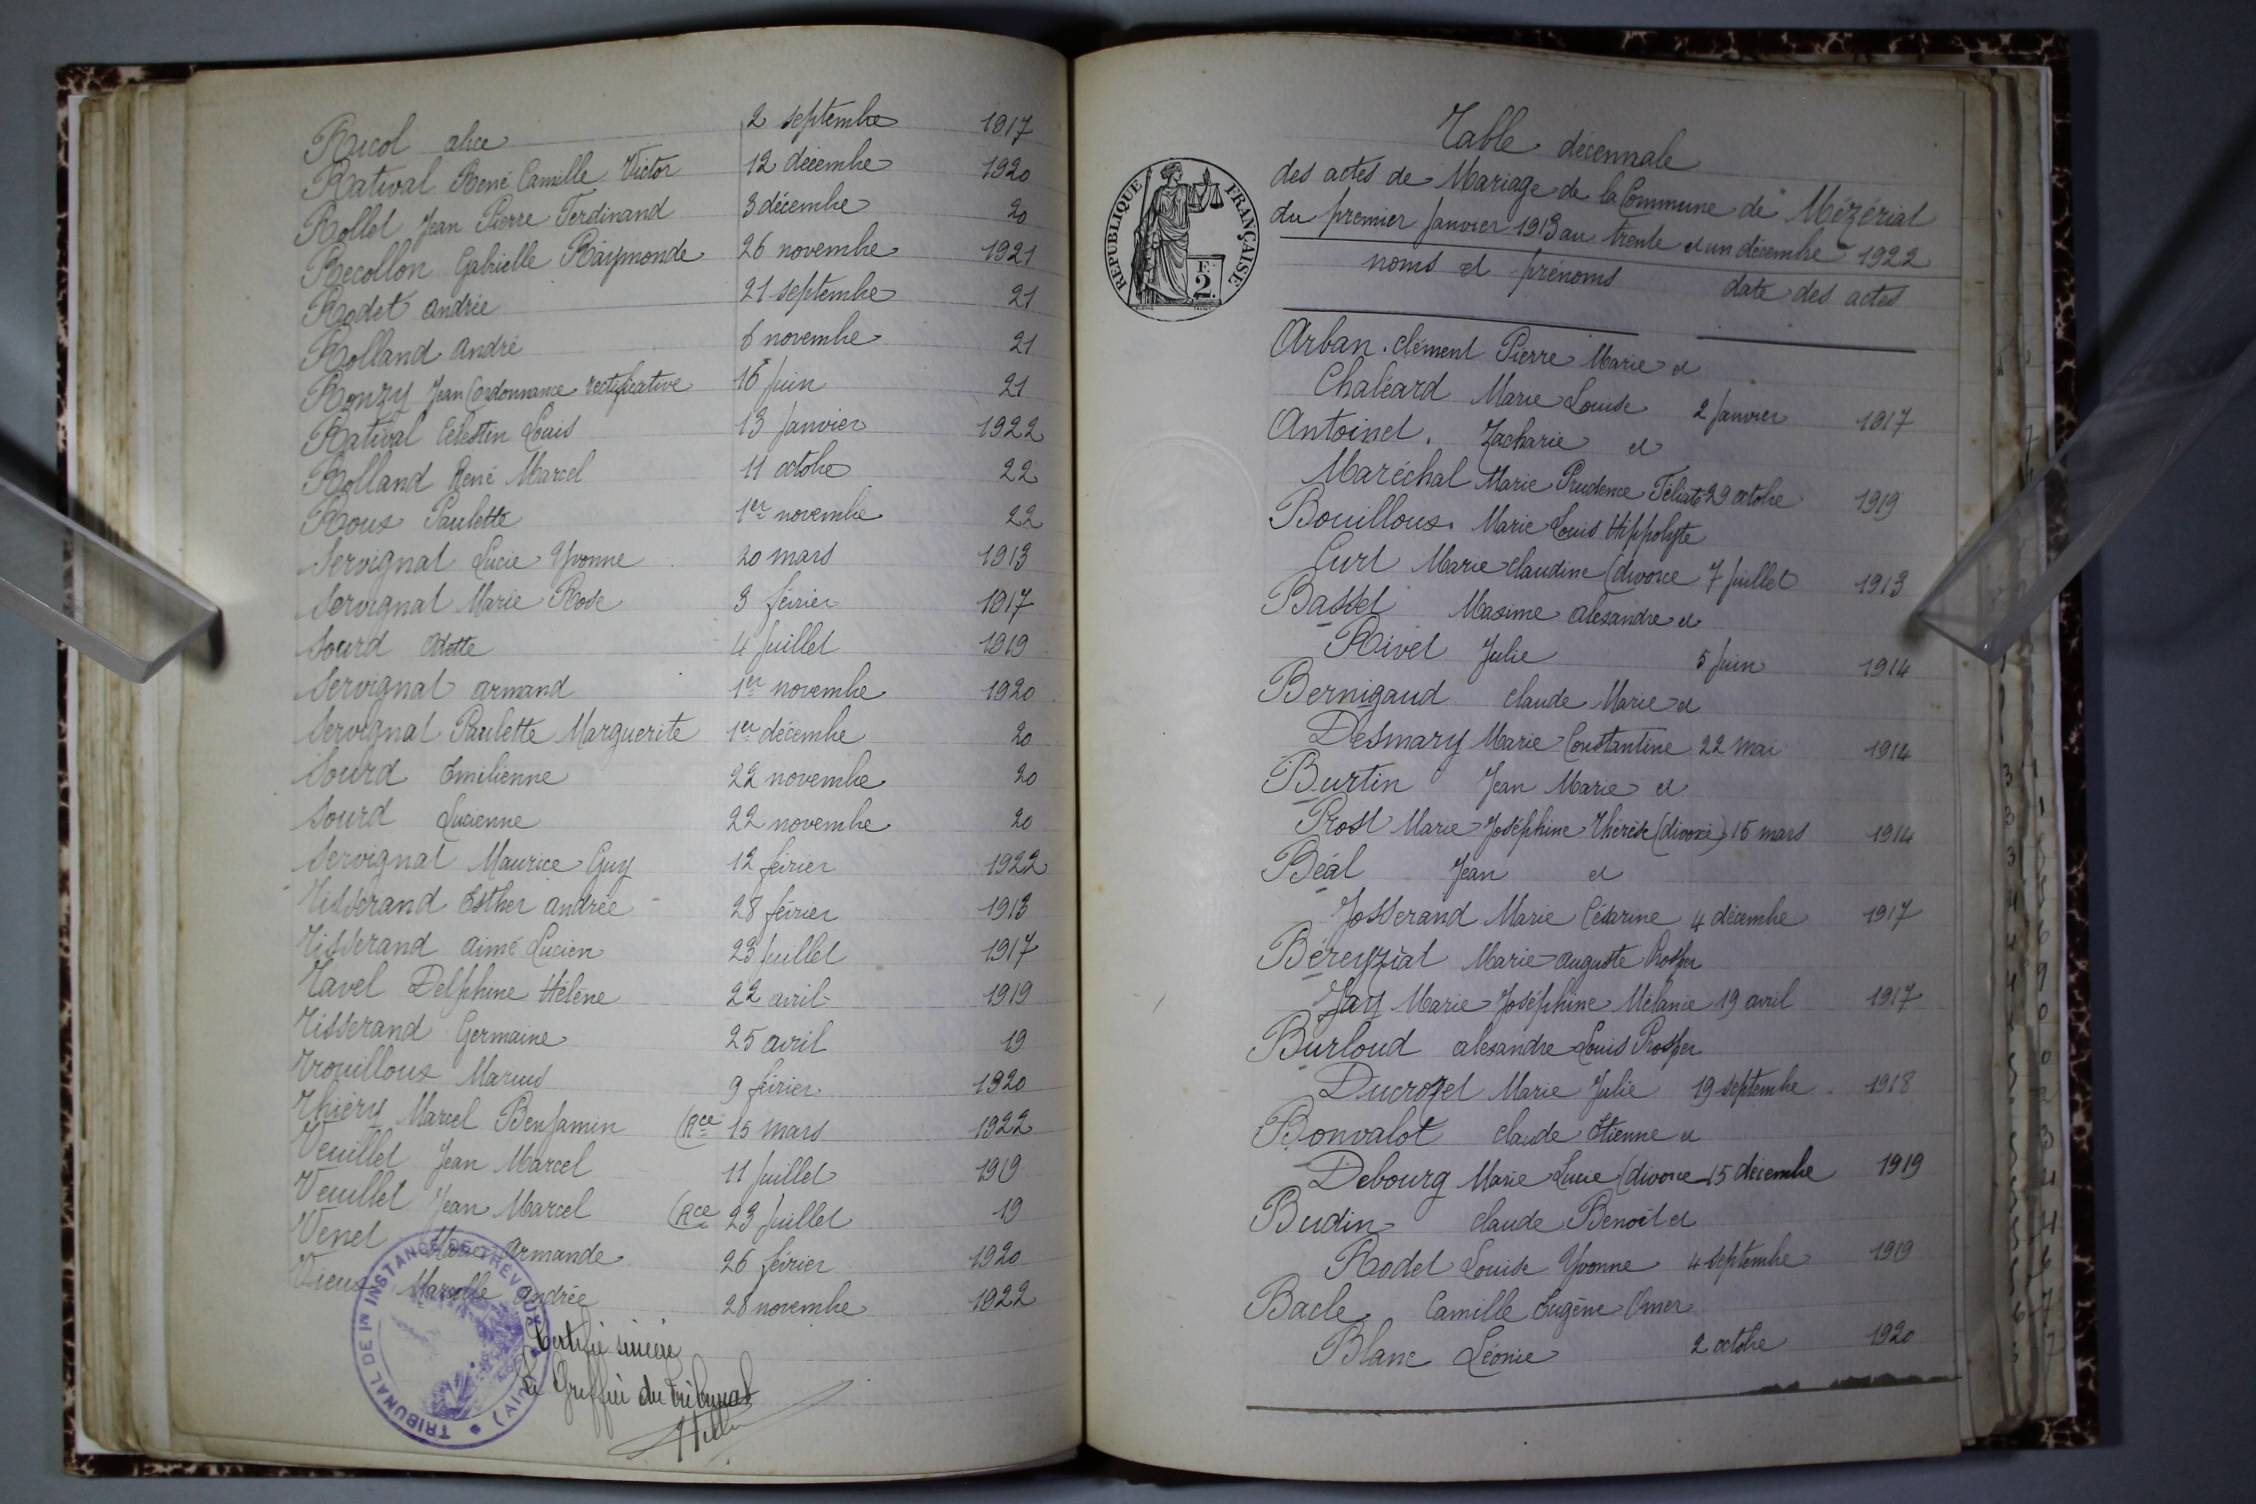 Ricol alice 2 septembre 1917
Rativat René Camille Victor 12 décembre 1920
Rollet Jean Pierre Ferdinand 3 décembre 20
Recollon Gabrielle Raymonde 26 novembre 1921
Rodet andrée 21 septembre 21
Rolland andré 6 novembre 21
Ronzy Jean (ordonnance rectificative 16 juin 21
Rativat Célestin Louis 13 janvier 1922
Rolland René Marcel 11 octobre 22
Roux Paulette 1er novembre 22
Servignat Lucie Yvonne 20 mars 1913
Servignat Marie Rose 3 février 1917
Sourd Odette 4 juillet 1919
Servignat armand 1er novembre 1920
Servignat Paulette Marguerite 1er décembre 20
Sourd Emilienne 22 novembre 20
Sourd Lucienne 22 novembre 20
Servignat Maurice Guy 12 février 1922
Tisserand Esther andrée 28 février 1913
Tisserand aimé Lucien 23 juillet 1917
Tavel Delphine Hélène 22 avril 1919
Tisserand Germaine 25 avril 19
Trouilloux Marius 9 février 1920
Thiéry Marcel Benjamin (Rce 15 mars 1922
Veuillet Jean Marcel 11 juillet 1919
Veuillet Jean Marcel (Rce 23 juillet 19
Venet Marie Armande 26 février 1920
Vieux Marcelle andrée 28 novembre 1922
Certifié sincère
Le Greffier du tribunal
TRIBUNAL DE 1N INSTANCE DE TRÉVOUX (AIN)
RÉPUBLIQUE FRANÇAISE
F.
2.
Table décennale
des actes de Mariage de la Commune de Mézériat
du premier Janvier 1913 au trente et un décembre 1922
noms et prénoms date des actes
Arban. clément Pierre Marie et
Chaléard Marie Louise 2 Janvier 1917
Antoinet. Zacharie et
Maréchal Marie Prudence 29 octobre 1919
Bouilloux. Marie Louis Hippolyte
Curt Marie claudine (divorce 7 juillet 1913
Basset Maxime alexandre et
Rivet Julie 5 juin 1914
Bernigaud claude Marie et
Desmary Marie Constantine 22 mai 1914
Burtin Jean Marie et
Prost Marie Joséphine Thérèse (divorce) 15 mars 1914
Béal Jean et
Josserand Marie Césarine 4 décembre 1917
Béreyziat Marie auguste Prosper
Jay Marie Joséphine Mélanie 19 avril 1917
Burloud alexandre Louis Prosper
Ducrozet Marie Julie 19 septembre 1918
Bonvalot claude Etienne et
Debourg Marie Lucie (divorce 15 décembre 1919
Budin claude Benoît et
Rodet Louise Yvonne 4 septembre 1919
Bacle Camille Eugène Omer
Blanc Léonie 2 octobre 1920